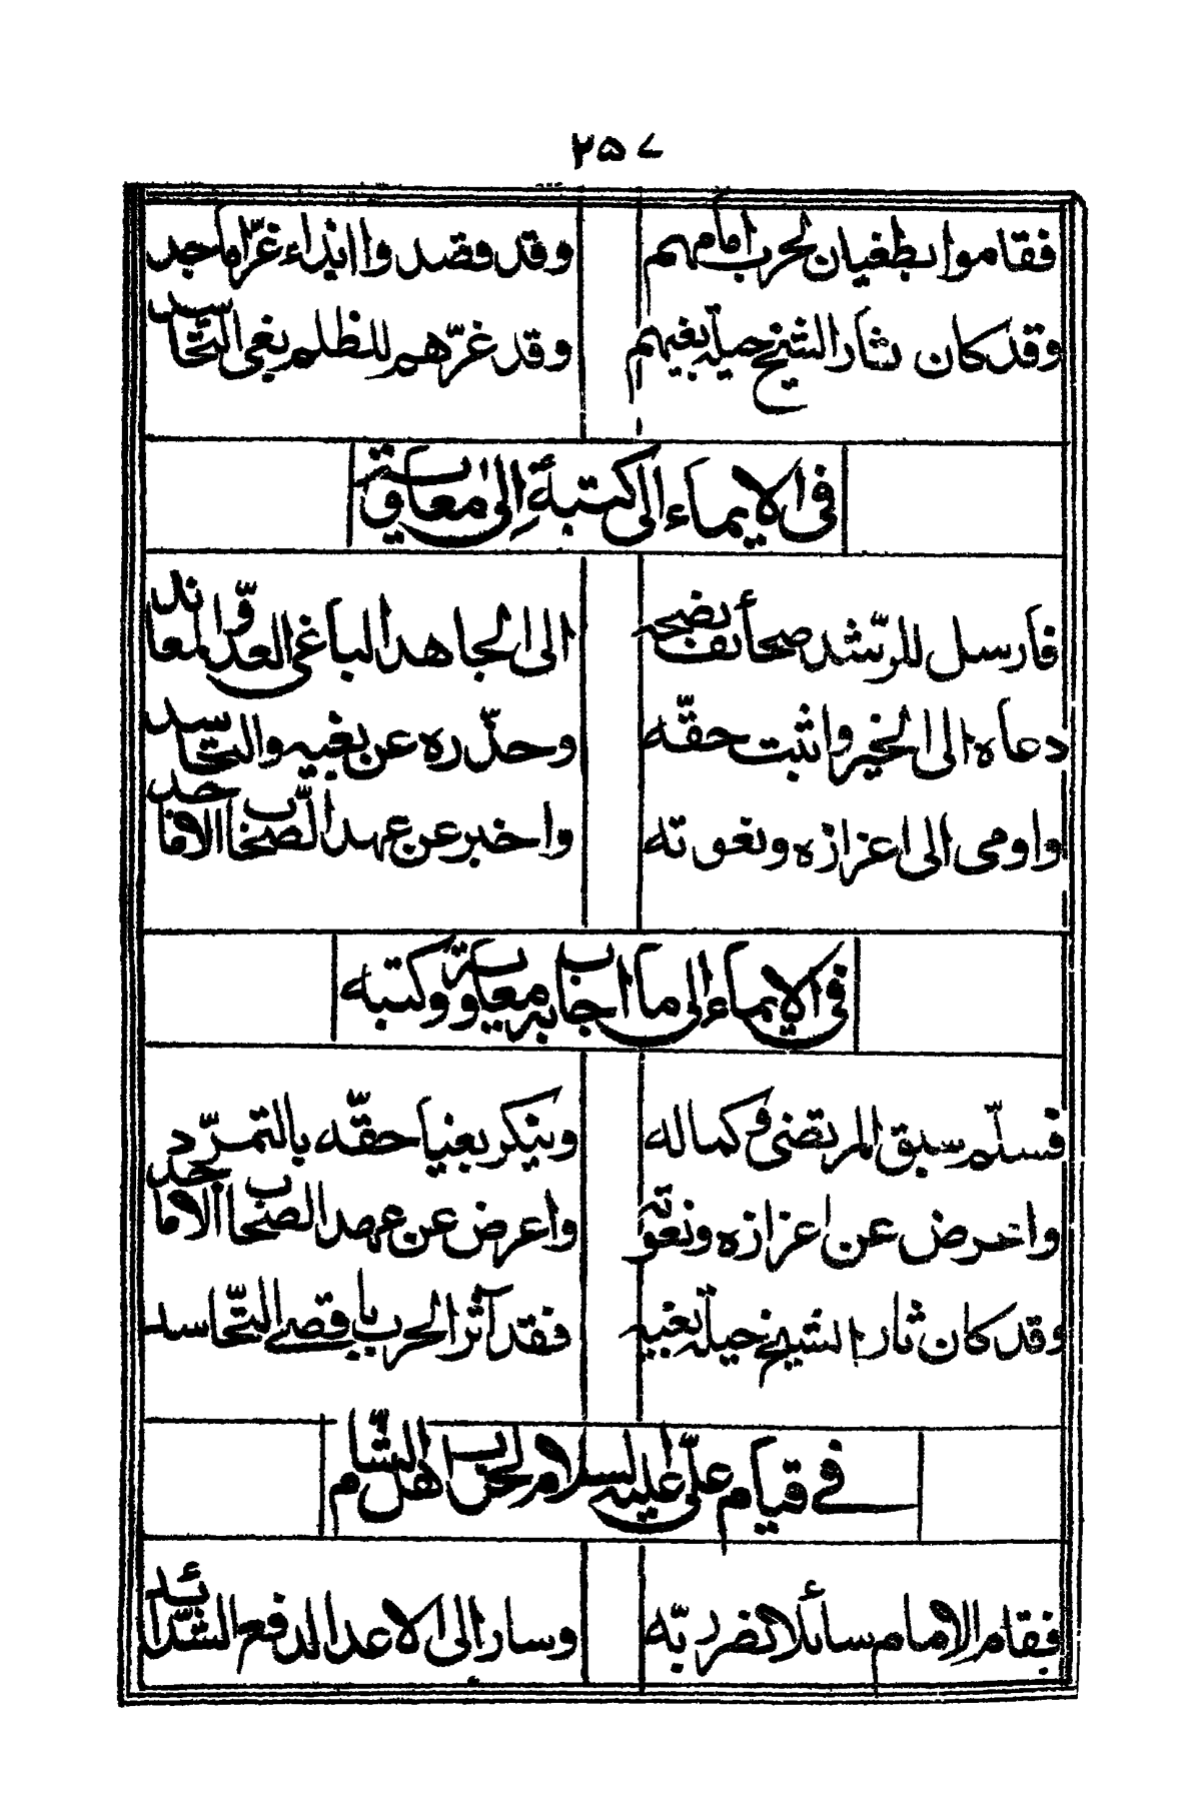 ۲۵۷
فقاموا بطغيان لحرب امامهم وقد قصدوا ايذاء غرّا ماجد
وقد كان ثار الشيخ حيلة بغيهم وقد غرّهم للظلم بغى التحاسد
فى الايماء الى كتبهٖ إلى معاوية
فارسل للرّشد صحائف نصحه الى الجاهد الباغى العدوّ المعاند
دعاه الى الخير واثبت حقّه وحذّره عن بغيه والتحاسد
واومى الى اعزازه ونعوته واخبر عن عهد الصّحاب الافاحد
فى الايماء الى ما اجاب به معاوية وكتبه
فسلّم سبق المرتضى وكماله وينكر بغيا حقّه بالتمرّد
واحرض عن اعزازه ونعوته واعرض عن عهد الصحاب الاماجد
وقد كان ثار الشيخ حيلة بغيه فقد آثر الحرب باقصى التّحاسد
فى قيام علىّ عليه السلام لحرب اهل الشّام
فقام الامام سائلا نضر ربّه وسار الى الاعدا لدفع الشّدائد